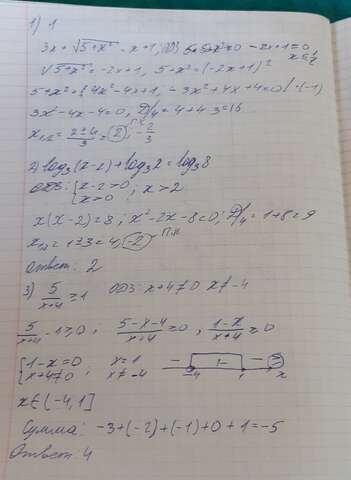 1) 1
3x + √5+x² - x + 1, ОДЗ 5+x²≥0 -2x+1≥0
x≤1/2
√5+x² = -2x+1, 5+x² = (-2x+1)²
5+x² = 4x²-4x+1, -3x²+4x+4=0 |·(-1)
3x²-4x-4=0, D/4=4+4·3=16
x₁,₂ = 2±4/3 = 2, -2/3 П.К
2) log₃(x-2)+log₃2=log₃8
ОДЗ: {x-2>0 ; x>2
x>0
x(x-2)=8; x²-2x-8=0; D/4=1+8=9
x₁,₂=1±3=4, -2 П.К
Ответ: 2
3) 5/x+4 ≥1 ОДЗ: x+4≠0 x≠-4
5/x+4 -1≥0; 5-x-4/x+4 ≥0, 1-x/x+4 ≥0
{1-x=0 ; x=1
x+4≠0 x≠-4
- + -
-4 1 x
x∈(-4,1]
Сумма: -3+(-2)+(-1)+0+1=-5
Ответ: 4